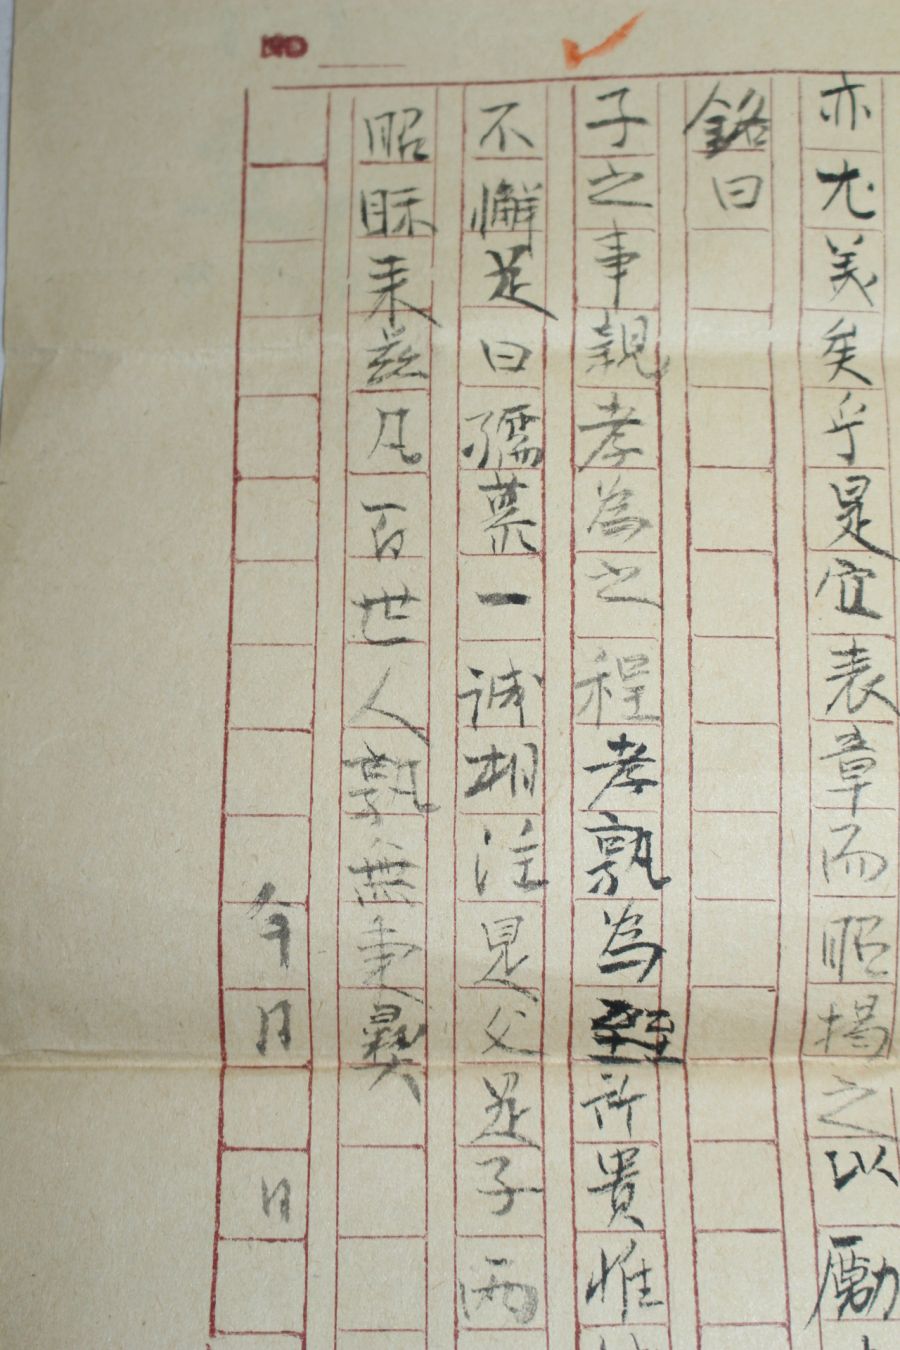 亦尤美矣乎是宜表章而昭揭之以勵
銘曰
子之事親孝為之程孝孰為 所貴惟
不懈是曰孺慕一誠相注是父是子兩
昭眎來茲凡百世人孰無秉彝
年月日
NO